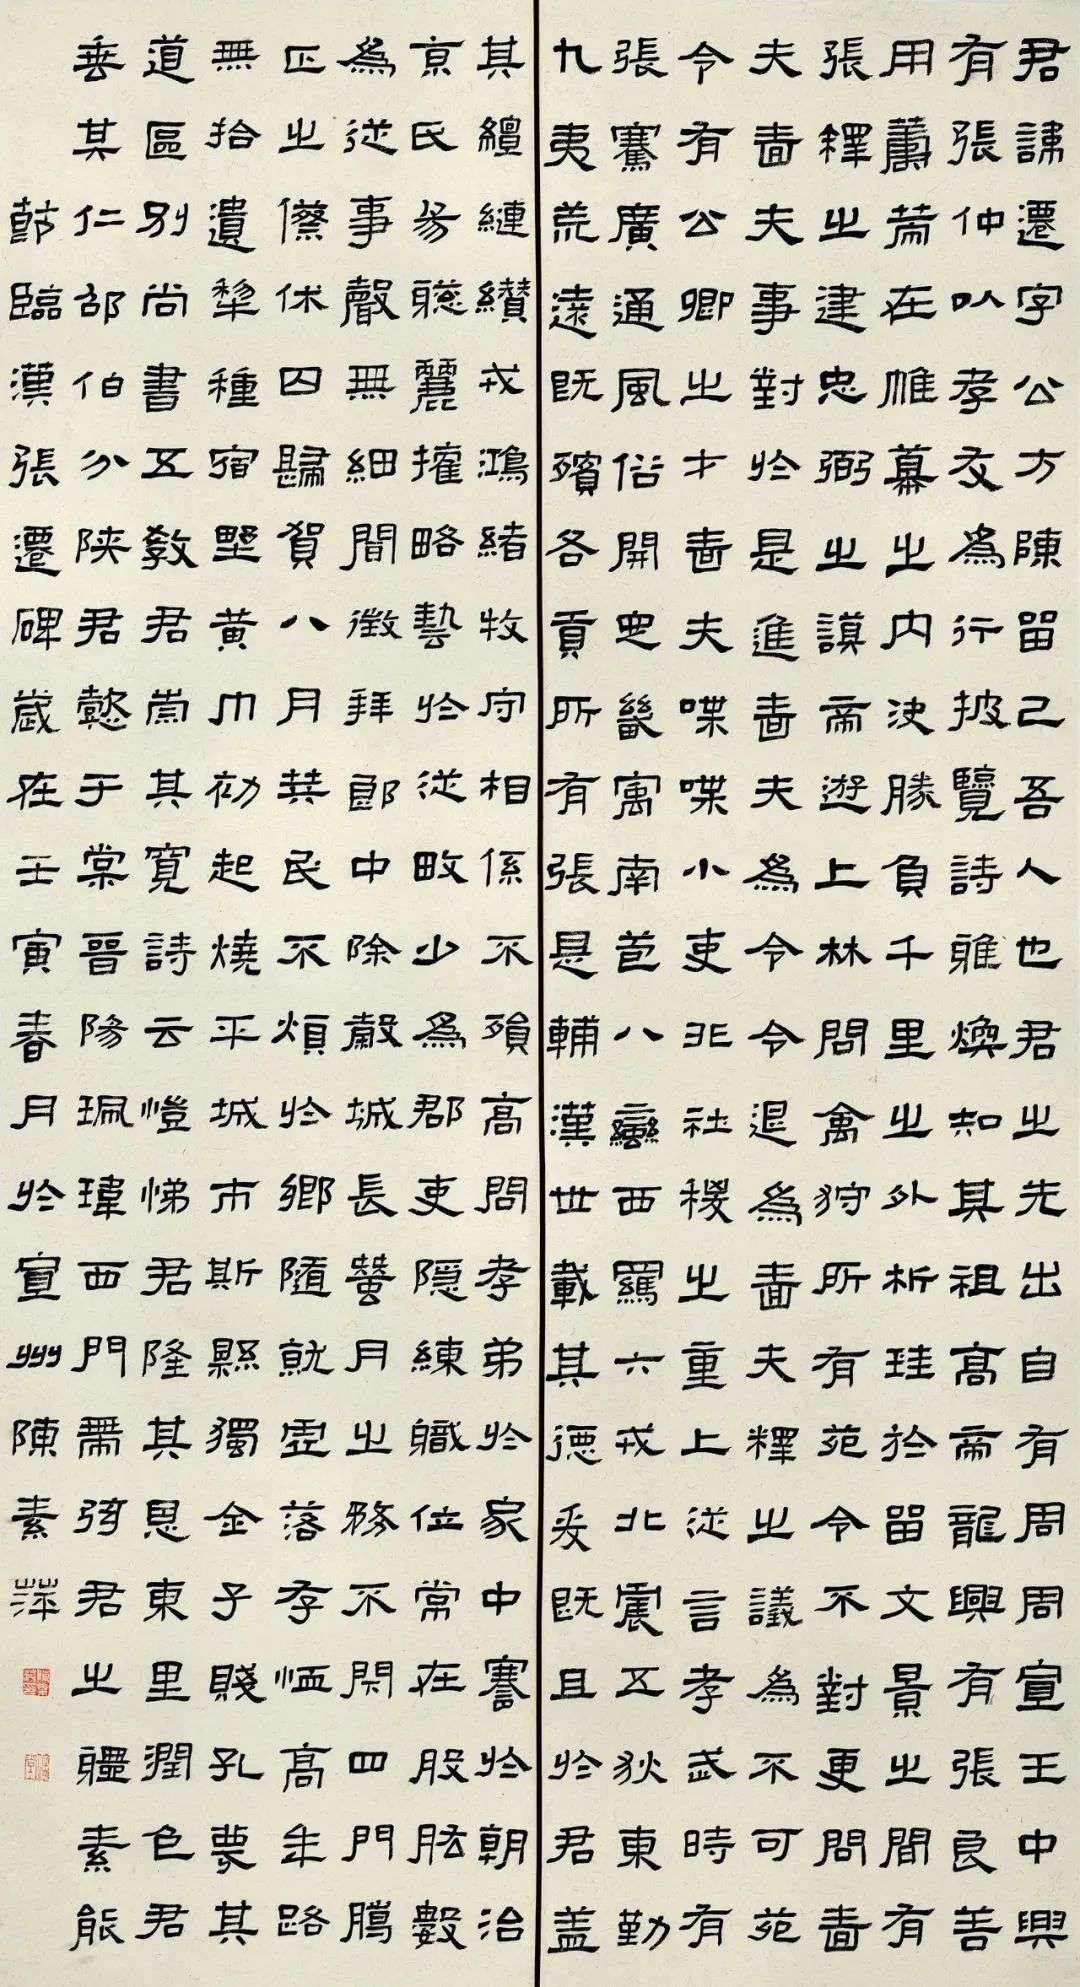 君諱遷字公方陳留己吾人也君之先出自有周周宣王中興
有張仲以孝友為行披覽詩雅煥知其祖高帝龍興有張良善
用籌策在帷幕之內決勝負千里之外析珪於留文景之間有
張釋之建忠弼之謨帝遊上林問禽狩所有苑令不對更問嗇
夫嗇夫事對於是進嗇夫為令令退為嗇夫釋之議為不可苑
令有公卿之才嗇夫喋喋小吏非社稷之重上從言孝武時有
張騫廣通風俗開定畿寓南苞八蠻西羈六戎北震五狄東勤
九夷荒遠既殯各貢所有張是輔漢世載其德爰既且於君蓋
其繵縺纘戎鴻緒牧守相係不殞高問孝弟於家中謇於朝治
京氏易聰麗權略藝於從畋少為郡吏隱練職位常在股肱數
為從事聲無細聞徵拜郎中除穀城長蠶月之務不閉四門臘
正之僚休囚歸賀八月算民不煩於鄉隨就虛落存恤高年路
無拾遺犁種宿野黃巾初起燒平城市斯縣獨全子賤孔蔑其
道區別尚書五教君崇其寬詩云愷悌君隆其恩東里潤色君
垂其仁邵伯分陝君懿于棠晉陽珮瑋西門帶弦君之體素能
節臨漢張遷碑歲在壬寅春月於宣州陳素萍